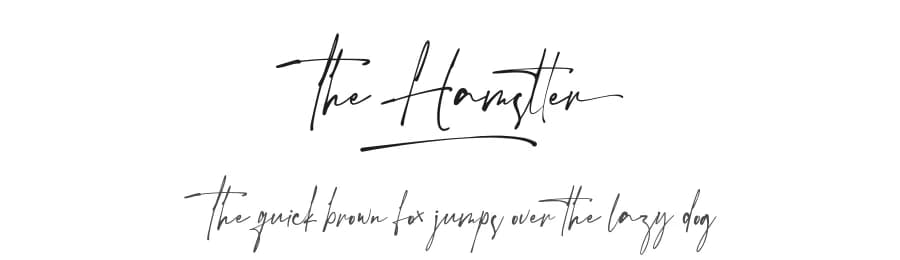 The Hamstter
The quick brown fox jumps over the lazy dog